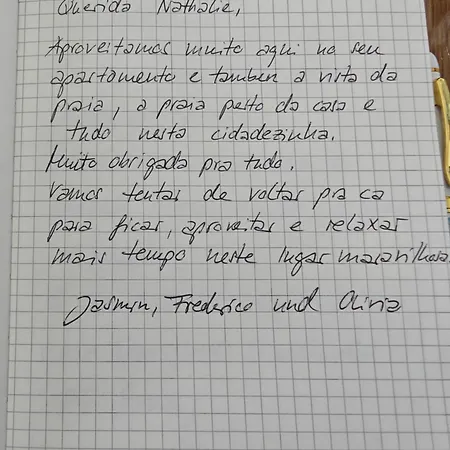 Querida Nathalie,
Aproveitamos muito aqui no seu
apartamento e tambem a vista da
praia, a praia perto da casa e
tudo nesta cidadezinha.
Muito obrigada pra tudo.
Vamos tentar de voltar pra ca
para ficar, aproveitar e relaxar
mais tempo neste lugar maravilhoso
Jasmin, Frederico und Olivia